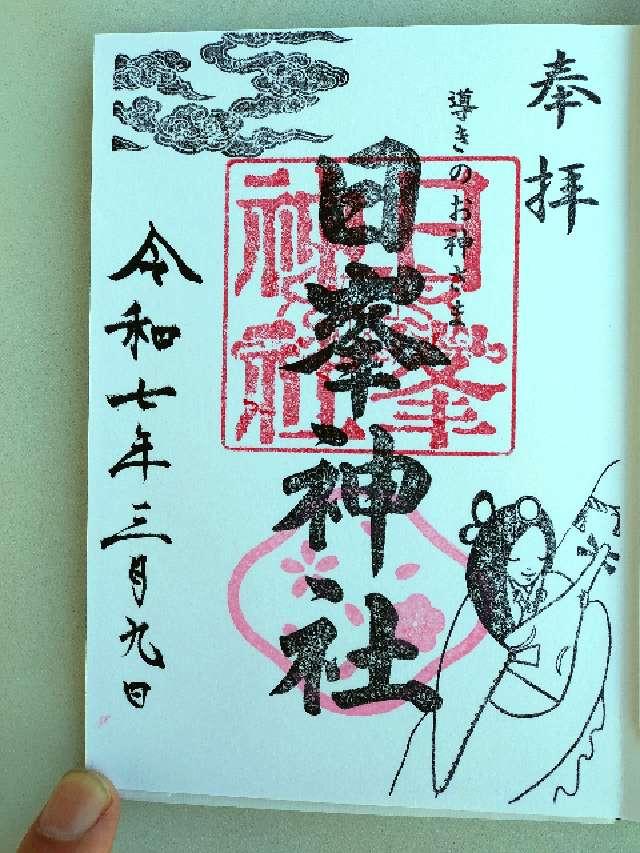 奉拝
導きのお神さま
日峯神社
日峯
神社
令和七年三月九日